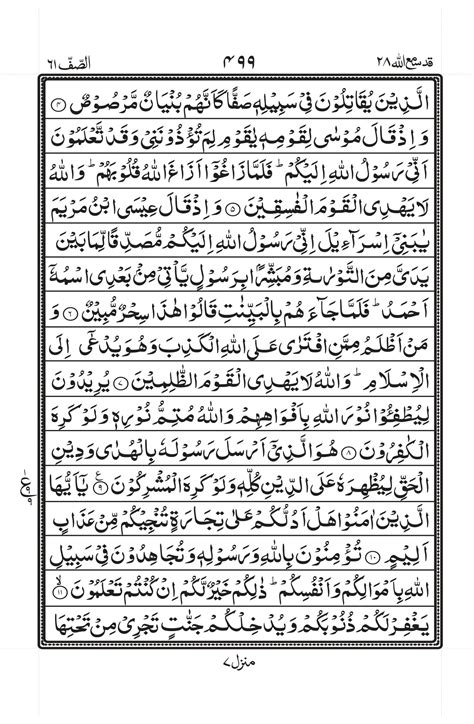 قد سمع الله ٢٨ ۴۹۹ الصّفّ ٦١
الَّذِیْنَ یُقَاتِلُوْنَ فِیْ سَبِیْلِهٖ صَفًّا كَاَنَّهُمْ بُنْیَانٌ مَّرْصُوْصٌ ﴿۴﴾
وَ اِذْ قَالَ مُوْسٰی لِقَوْمِهٖ یٰقَوْمِ لِمَ تُؤْذُوْنَنِیْ وَ قَدْ تَّعْلَمُوْنَ
اَنِّیْ رَسُوْلُ اللّٰهِ اِلَیْكُمْ ؕ فَلَمَّا زَاغُوْۤا اَزَاغَ اللّٰهُ قُلُوْبَهُمْ ؕ وَ اللّٰهُ
لَا یَهْدِی الْقَوْمَ الْفٰسِقِیْنَ ﴿۵﴾ وَ اِذْ قَالَ عِیْسَی ابْنُ مَرْیَمَ
یٰبَنِیْۤ اِسْرَآءِیْلَ اِنِّیْ رَسُوْلُ اللّٰهِ اِلَیْكُمْ مُّصَدِّقًا لِّمَا بَیْنَ
یَدَیَّ مِنَ التَّوْرٰىةِ وَ مُبَشِّرًۢا بِرَسُوْلٍ یَّاْتِیْ مِنْۢ بَعْدِی اسْمُهٗۤ
اَحْمَدُ ؕ فَلَمَّا جَآءَهُمْ بِالْبَیِّنٰتِ قَالُوْا هٰذَا سِحْرٌ مُّبِیْنٌ ﴿۶﴾ وَ
مَنْ اَظْلَمُ مِمَّنِ افْتَرٰی عَلَی اللّٰهِ الْكَذِبَ وَ هُوَ یُدْعٰۤی اِلَی
الْاِسْلَامِ ؕ وَ اللّٰهُ لَا یَهْدِی الْقَوْمَ الظّٰلِمِیْنَ ﴿۷﴾ یُرِیْدُوْنَ
لِیُطْفِـُٔوْا نُوْرَ اللّٰهِ بِاَفْوَاهِهِمْ وَ اللّٰهُ مُتِمُّ نُوْرِهٖ وَ لَوْ كَرِهَ
الْكٰفِرُوْنَ ﴿۸﴾ هُوَ الَّذِیْۤ اَرْسَلَ رَسُوْلَهٗ بِالْهُدٰی وَ دِیْنِ
الْحَقِّ لِیُظْهِرَهٗ عَلَی الدِّیْنِ كُلِّهٖ وَ لَوْ كَرِهَ الْمُشْرِكُوْنَ ﴿۹﴾ یٰۤاَیُّهَا
الَّذِیْنَ اٰمَنُوْا هَلْ اَدُلُّكُمْ عَلٰی تِجَارَةٍ تُنْجِیْكُمْ مِّنْ عَذَابٍ
اَلِیْمٍ ﴿۱۰﴾ تُؤْمِنُوْنَ بِاللّٰهِ وَ رَسُوْلِهٖ وَ تُجَاهِدُوْنَ فِیْ سَبِیْلِ
اللّٰهِ بِاَمْوَالِكُمْ وَ اَنْفُسِكُمْ ؕ ذٰلِكُمْ خَیْرٌ لَّكُمْ اِنْ كُنْتُمْ تَعْلَمُوْنَ ﴿۱۱﴾
یَغْفِرْ لَكُمْ ذُنُوْبَكُمْ وَ یُدْخِلْكُمْ جَنّٰتٍ تَجْرِیْ مِنْ تَحْتِهَا
منزل ٧